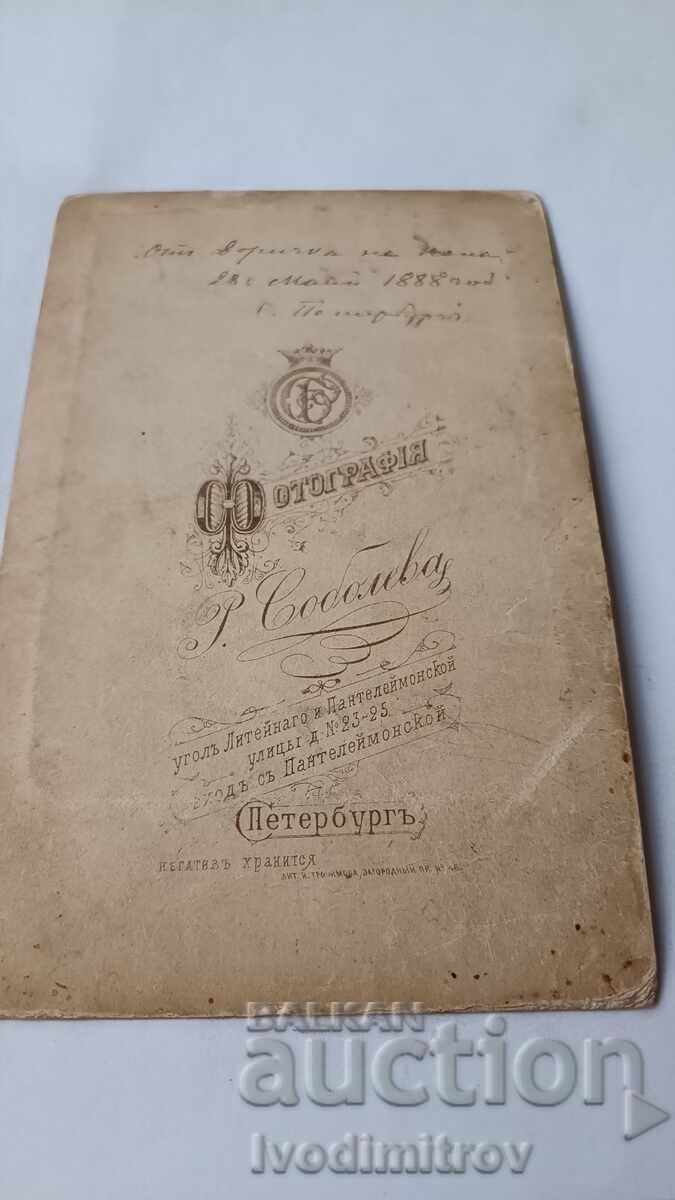 отъ Зоричка на
Май 1888 год
С. Петербургъ
ФОТОГРАФІЯ
Р. Соболева
уголъ Литейнаго и Пантелеймонской
улицы д. №23-25.
входъ съ Пантелеймонской
С Петербургъ.
НЕГАТИВЪ ХРАНИТСЯ
ЛИТ. И. ТРОФИМОВА, ЗАГОРОДНЫЙ ПР. № 48.
BALKAN
auction
Ivodimitrov